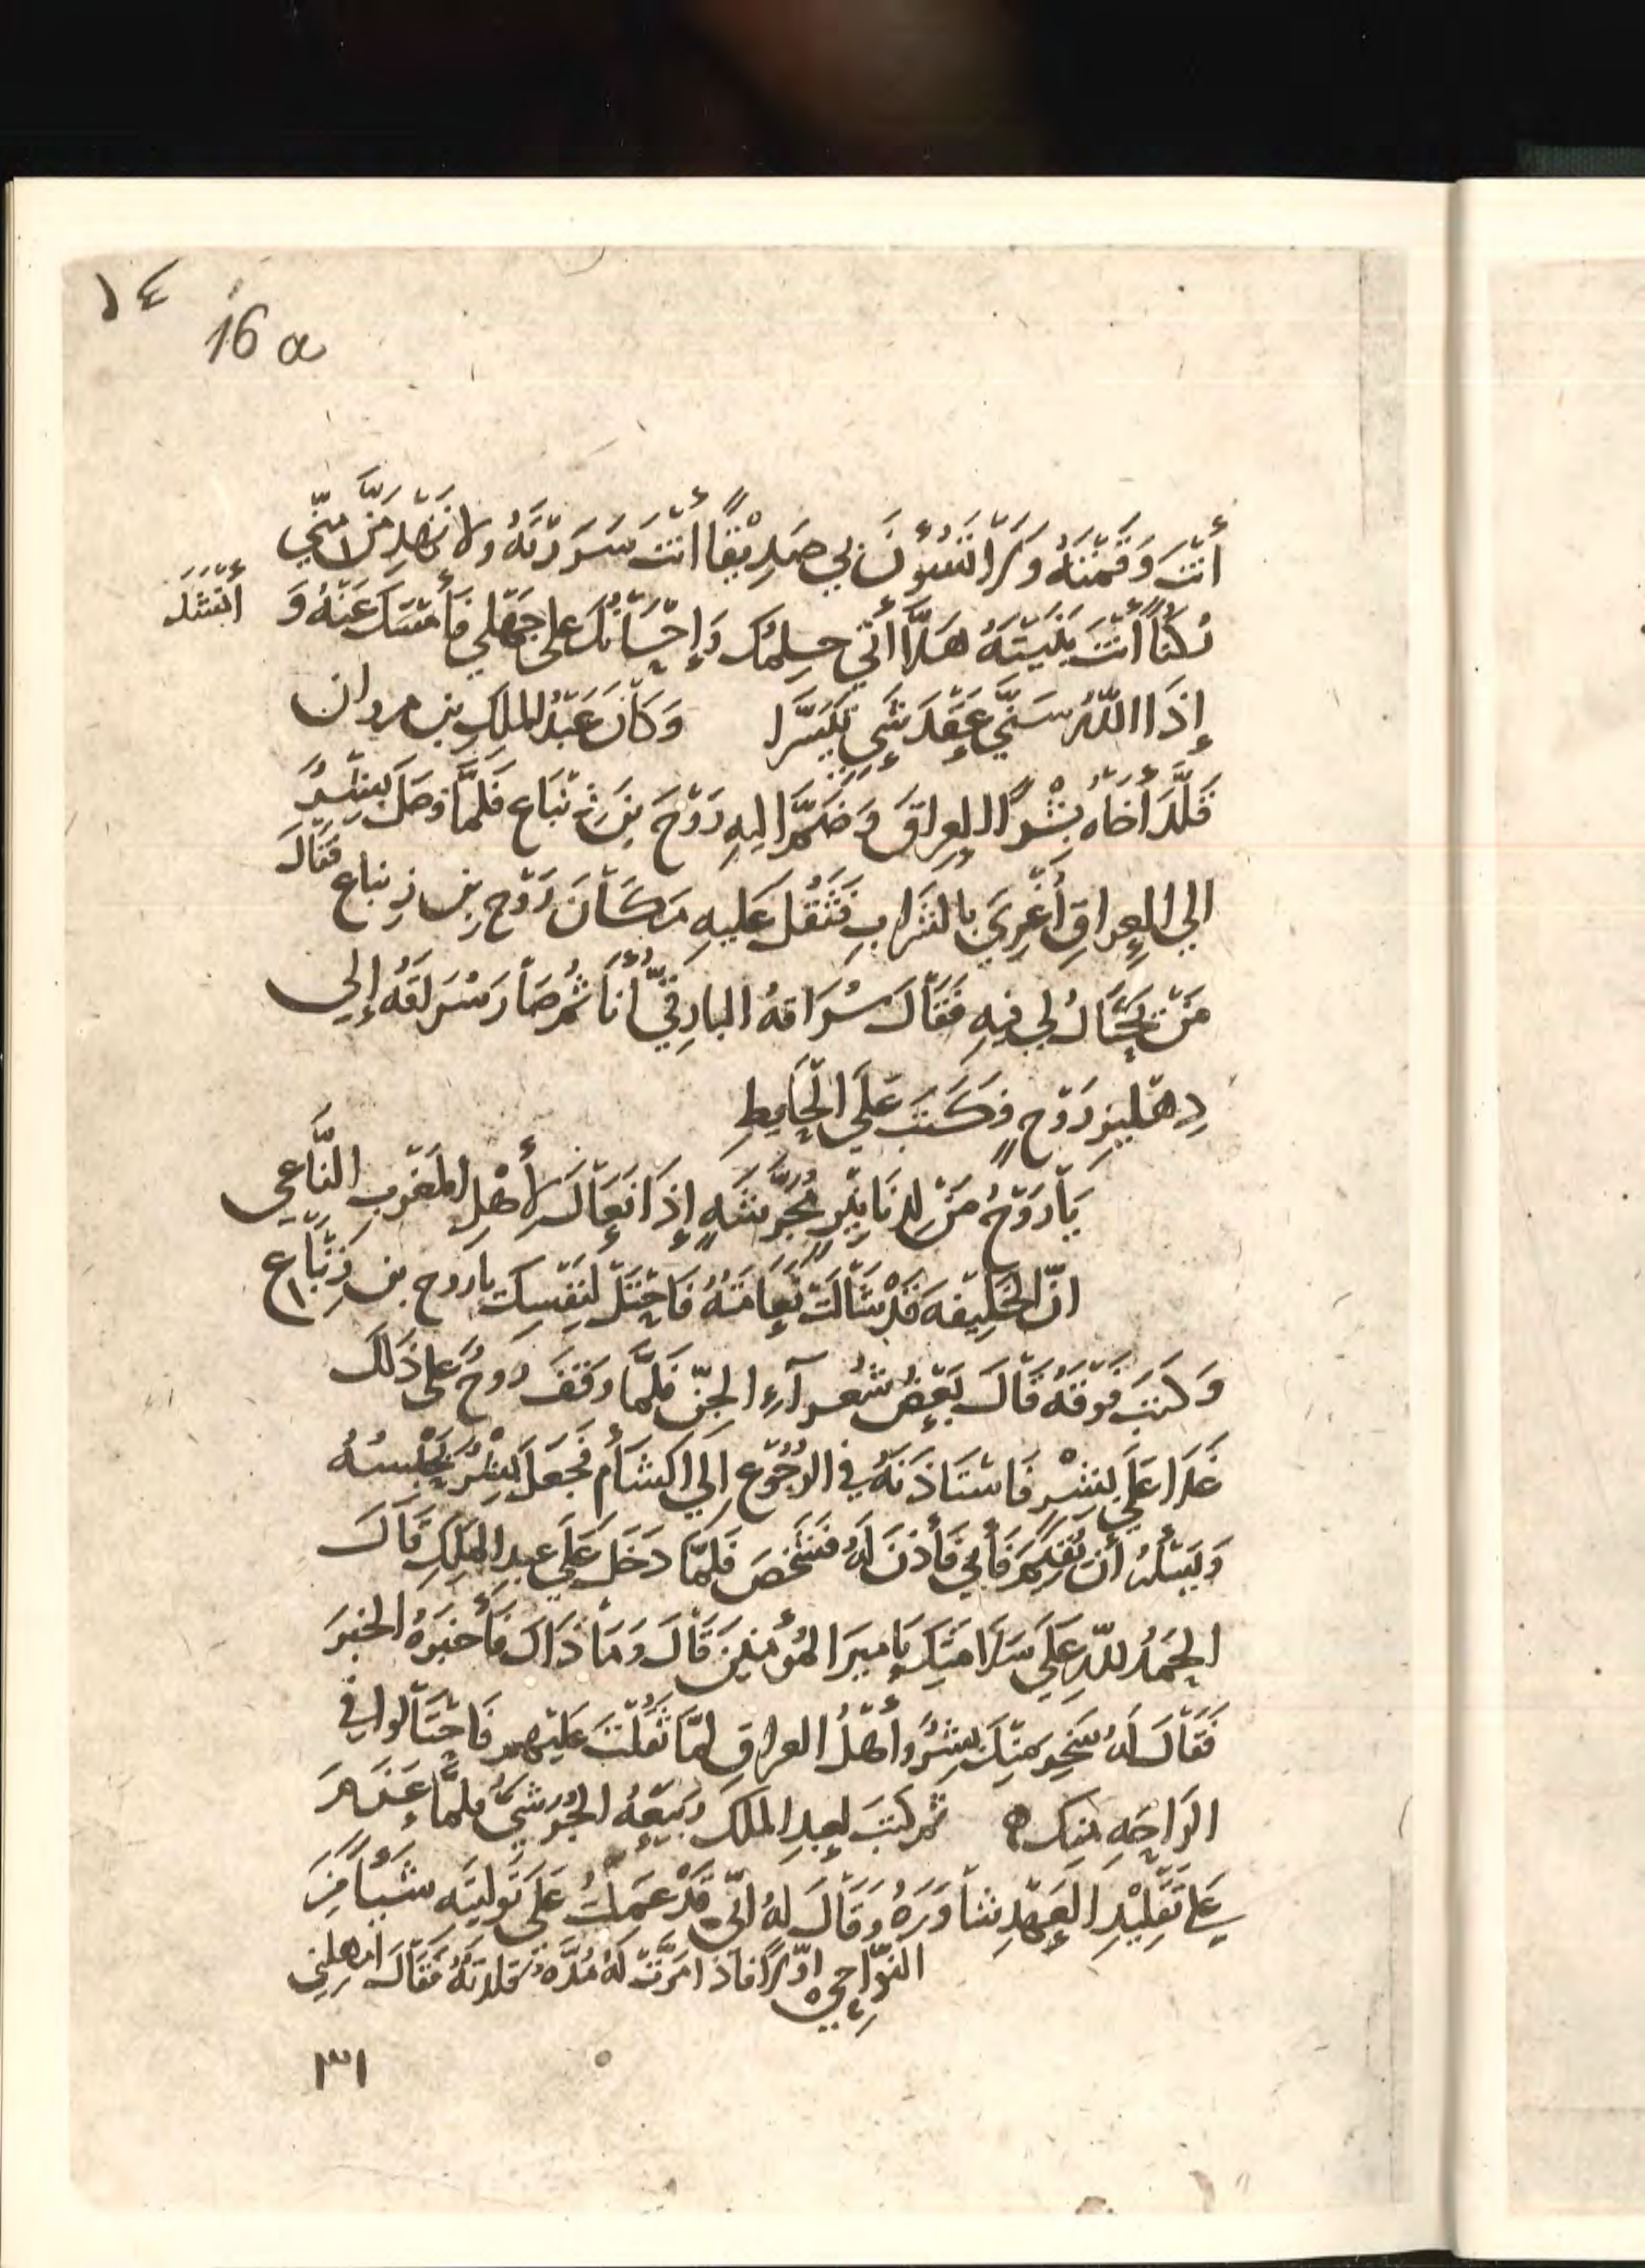 ١٤
16 a
أنْتَ وَقَمْتَهُ وَلَا تَسُوُنَ بي صَدِيْقًا أنْتَ سَرَرْتَهُ ولا تَهْدِمَنَّ مِنّي
رُكنًا أنْتَ بَنَيْتَهُ هَلَّا أتى حِلمُكَ وَإحْسَانُكَ على جَهْلي فَأمْسَكَ عَنْهُ وَ أنْشَدَ
إذَا اللّهُ سَنّي عَقْدَ شَيءٍ تَيَسَّرا وَكَانَ عَبْدُ الملكِ بن مروان
قَلَّدَ أخَاهُ بِشْرًا العِراقَ وَضَمَّ اليهِ رَوْحَ بنَ زِنْبَاعٍ فَلَمَّا وَصَلَ بِشْرٌ
الي العِراقِ أُغْرِيَ بالشَرابِ فَثَقُلَ عَليهِ مَكَانَ رَوْحِ بن زِنباعٍ فَقَالَ
مَنْ يَحْتَالُ لي فيهِ فَقَالَ سُرَاقهُ البارِقيُّ أنَا ثُمَّ صَارَ سُرَاقَهُ إلى
دِهْليزِ رَوْحٍ فَكَتَبَ عَلَي الحَايِطِ
يَا رَوْحُ مَنْ لِدَنَانِيْرٍ مُجَرَّشَهٍ إذَا نَعَاكَ لأهْلِ المَغْرِبِ النَّاعِي
انّ الخَلِيْفهَ قَدْ شَالَتْ نَعَامَتُهُ فَاحْتَلْ لنَفْسِكَ يا روح بن زِنْبَاعِ
وَكَتبَ فَوْقَهُ قَالَ بَعْضُ شُعرآءِ الجِنّ فَلمَّا وَقَفَ رَوحٌ على ذَلكَ
غَدَا عَلَي بِشْرٍ فَاسْتَاذَنَهُ في الرُجُوْعِ إلَي الشَأْمِ فَجَعَلَ بِشْرٌ يَحْبِسُهُ
وَيَسْألُهُ أنْ يُقِيْمَ فَأبي فَأذنَ لَهُ فَشَخَصَ فَلمّا دَخَلَ عَلَي عبدِ الملِكِ قَالَ
الحَمْدُ للّهِ عَلَي سَلَامَتِكَ يَا ميرَ المُؤمنينَ قَالَ وَمَا ذَاكَ فَأَخبَرَهُ الخبَرَ
فَقَالَ لَهُ سَخِرَ مِنْكَ بِشرٌ وأهْلُ العراقِ لمّا ثَقُلْتَ عَلَيْهِم فَاحْتَالوا في
الرَاحَهِ مِنك ثم كَتبَ لعبدِ الملكَ رَبيعَهُ الجُرَشيُّ فلمَّا عَزَمَ
عَلَى تَقْلِيْدِ العَهْدِ شَاوَرَهُ وَقَالَ لهُ انّي قَدْ عَمِلتُ عَلَى تَوليَتهِ شَيْأً مِنَ
النّوَاحي أوّلًا فاذَا مَرّتْ لَهُ مُدَّهٌ قلدتَهُ فَقَالَ امهلني
٣١